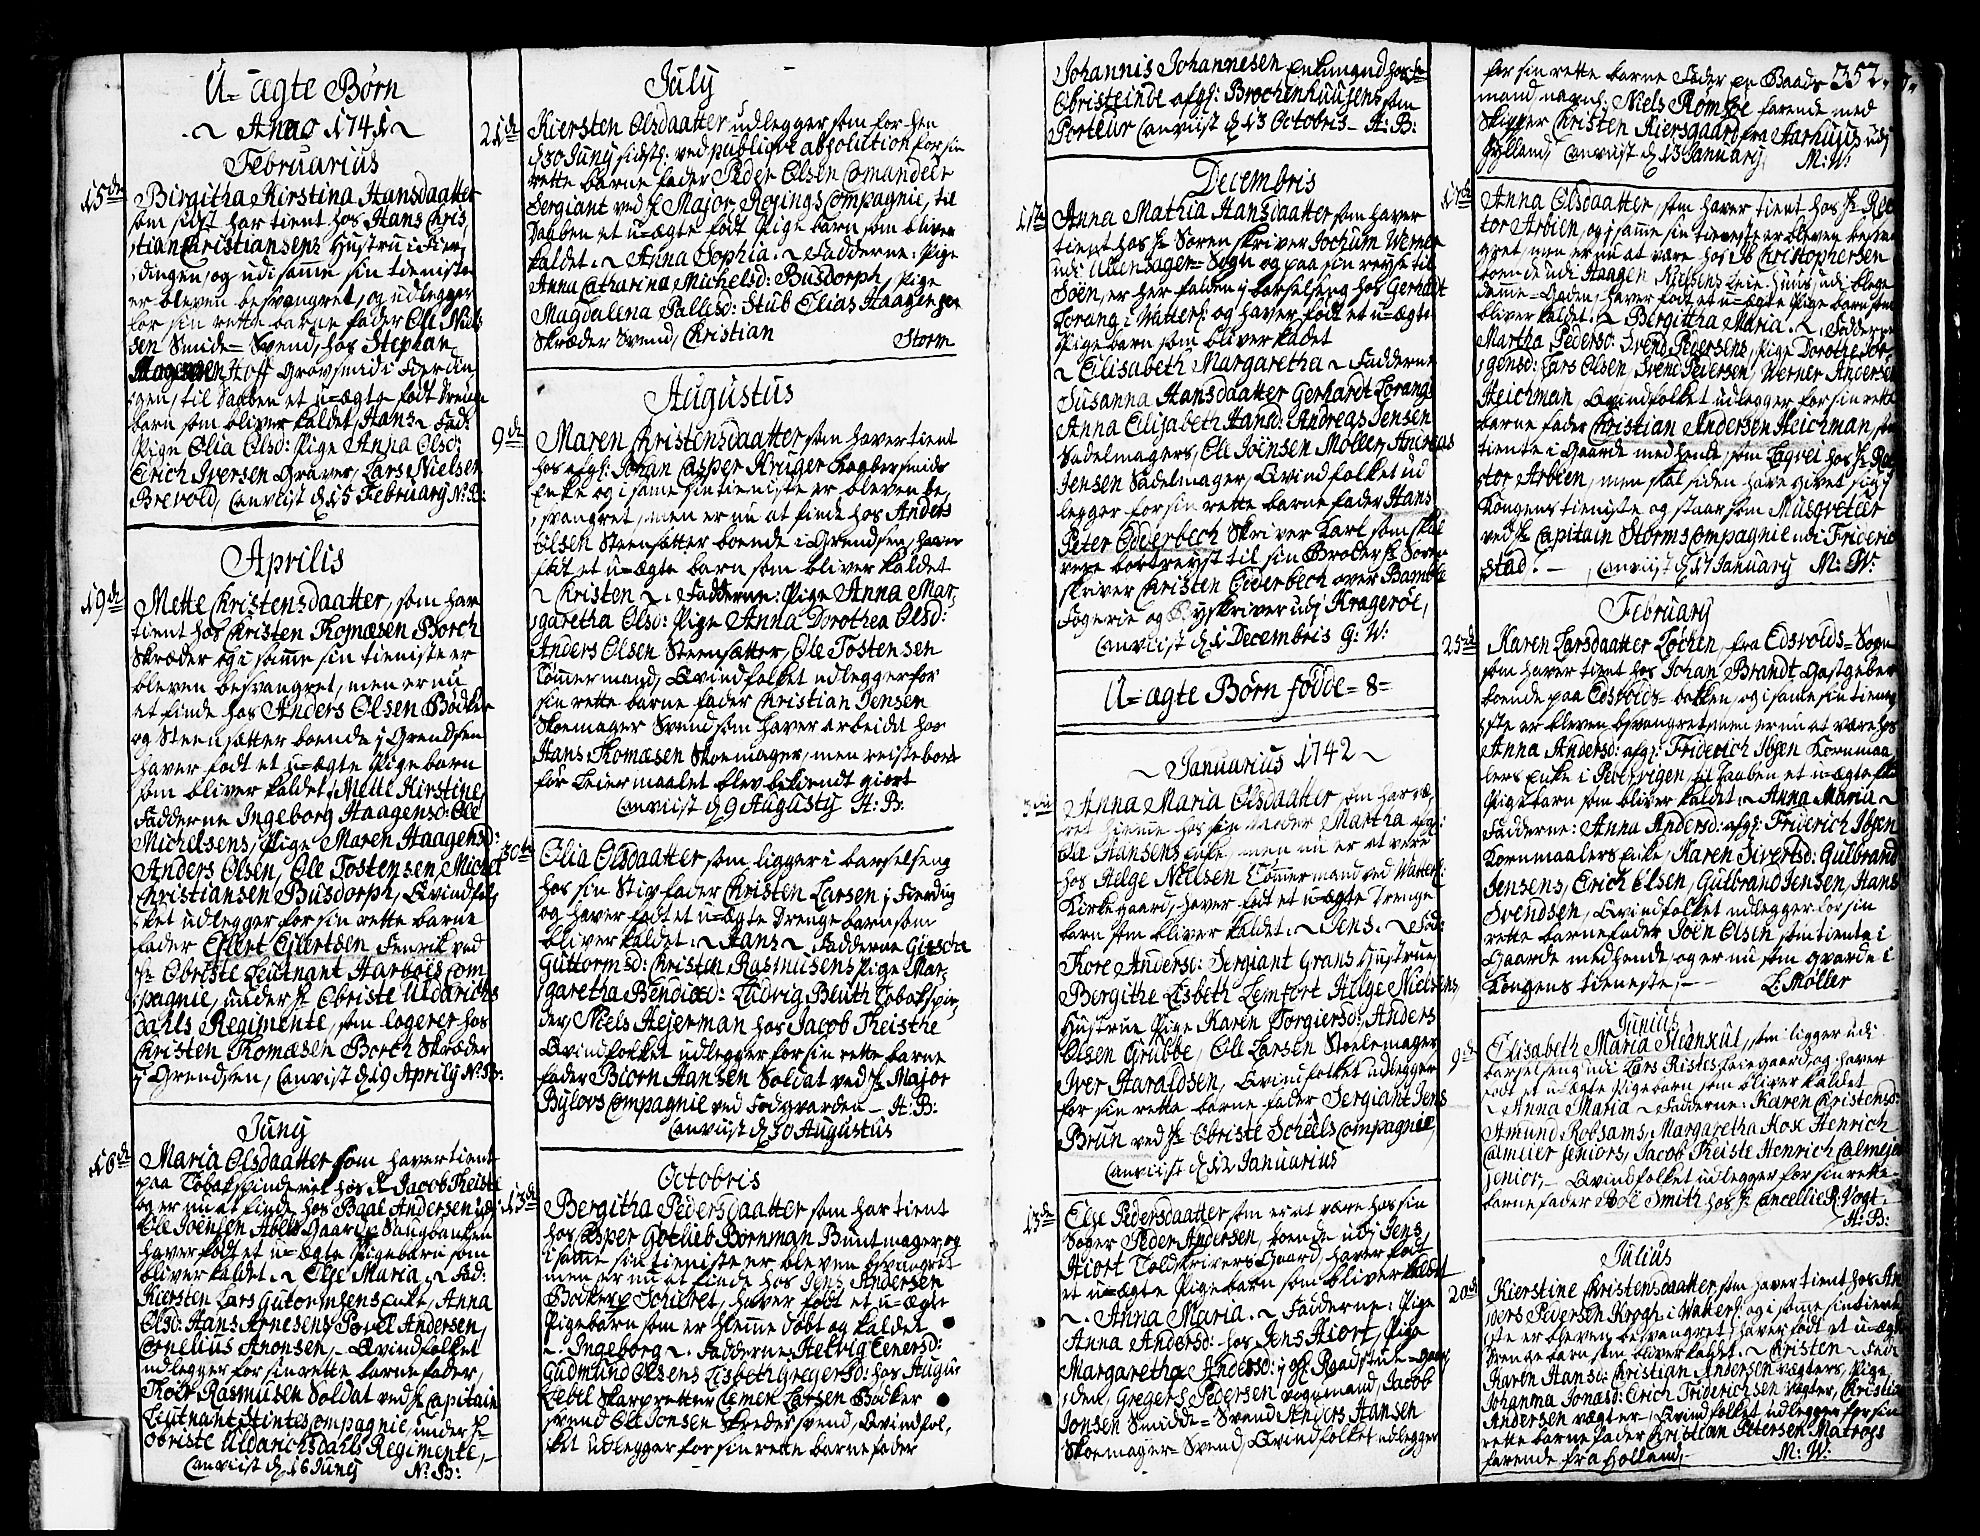 U=ægte Børn
~ Anno 1741 ~
Februarius
15de Birgitha Kirstina Hansdaatter
som sidst har tient hos Hans Chris
tian Christiansens Hustru i Fier,
dingen, og udi samme sin tieniste
er bleven besvangret, og udlegger
for sin rette barne fader Ole Niels
sen Smide=Svend, hos Stephan
Hoff Grovsmid i Fierdin
gen, til Daaben et u=ægte født Drenge
barn som bliver kaldet, Hans ~ Fad:
Pige Olia Olsd: Pige Anna Olsd:
Erich Iversen Graver, Lars Nielsen
Brevold, Canviist d 15 February N:B:
Aprilis
19de Mette Christensdaatter, som har
tient hos Christen Thomæsen Borch
Skræder og i samme sin tieniste er
bleven besvangret, men er nu
at finde hos Anders Olsen Bødker
og Steensætter boende i Grendsen
haver født et u=ægte Pige barn
som bliver kaldet, Mette Kirstine,
Fadderne Ingeborg Haagensd: Ole
Michelsens, Pige Maren Haagensd:
Anders Olsen, Ole Tostensen, Michel
Christiansen Busdorph, Qvindfol,
ket udlegger for sin rette barne
fader Ellert Ejlertsen Fenrik ved
Hr Obriste Leutnant Harboes Com
pagnie, under Hr Obriste Uldarichs
dahls Regimente, som logerer hos
Christen Thomæsen Borch Skræder
i Grendsen, Canvist d 19 Aprily N:B:
Juny
16de Maria Olsdaatter som haver tient
paa Tobakspinderiet hos Hr Jacob Theiste
og er nu at finde hos Baal Andersen udi
Ole Joensen Abels Gaard paa Saugbanken
haver født et u=ægte Pigebarn som
bliver kaldet ~ Else Maria ~ Fad:
Kiersten Lars Gutormsens Enke, Anna
Olsd: Hans Arnesens, Povel Andersen,
Cornelius Anonsen, Qvindfolket
udlegger for sin rette barne fader,
Thore Rasmusen Soldat ved Hr Capitain
Lieutnant Stintes Compagnie, under Hr
Obriste Uldarichsdahls Regimente,
Canviist d 16 Juny N:B:
July
21de Kiersten Olsdaatter udlegger som for hen
d 30 Juny sidsts: ved publique absolution for sin
rette barne fader Peder Olsen Comandeer
Sergiant ved Hr Major Røyings Compagnie, til
Daaben et u=ægte født Pige barn som bliver
kaldet ~ Anna Sophia ~ Fadderne: Pige
Anna Catharina Michelsd: Busdorph, Pige
Magdalena Pallisd: Stub Elias Haagensen
Skræder Svend, Christian Storm
Augustus
9de Maren Christensdaatter som haver tient
hos afg: Johan Casper Krüger Kaabersmids
Enke og i same sin tieniste er bleven be,
svangret, men er nu at finde hos Anders
Olsen Steensætter boende i Grendsen, haver
født et u=ægte barn som bliver kaldet
~ Christen ~. Fadderne: Pige Anna Mar,
garetha Olsd: Pige Anna Dorothea Olsd:
Anders Olsen Steensætter, Ole Tostensen
Tømmermand, Qvindfolket udlegger for
sin rette barne fader Christian Jensen
Skoemager Svend som haver arbeidet hos
Hans Thomæsen Skoemager, men reiste bort
før Leiermaalet blev bekiendt giort
Canviist d 9 Augusty H:B:
30te Olia Olsdaatter som ligger i barselseng
hos sin Stivfader Christen Larsen i Fierding
og haver født et u=ægte Drenge barn som
bliver kaldet ~ Hans ~ Fadderne Giæscha
Guttormsd: Christen Rasmusens Pige Mar,
garetha Bendixd: Ludvig Bluth Tobakspin,
der, Niels Hejerman hos Jacob Theiste
Qvindfolket udlegger for sin rette barne
fader Biørn Hansen Soldat ved Hr Major
Bylovs Compagnie ved Fodgvarden – H:B:
Canviist d 30 Augustus
Octobris
13de Bergitha Pedersdaatter som har tient
hos Casper Gotlieb Bornman Buntmager, og
i samme sin tieniste er bleven besvangret
men er nu at finde hos Jens Andersen
Bødker Schieret, haver født et u=ægte
Pigebarn som er hiemme døbt og kaldet
~ Ingeborg ~. Fadderne: Helvig Einersd:
Gudmund Olsens, Lisbeth Gregersd: hos Augus
Lebel Skarpretter, Clemen Larsen Bødker
svend Ole Jonsen Skreder svend, Qvindfol,
ket udlegger for sin rette barne fader
Johannis Johannesen Enkemand hos Hr
Obristeinde afg: Brochenhuusens som
Porteur Canviist d 13 Octobris – H:B:
Decembris
1te Anna Mathia Hansdaatter som haver
tient hos Hr Sorenskriver Jochum Werner
udi Ullensager=Sogn og paa sin reyse til
Søen, er her falden i barselseng hos Gerhardt
Lorang i Watterl: og haver født et u=ægte
Pigebarn som bliver kaldet
~ Elisabeth Margaretha ~ Fadderne
Susanna Hansdaatter Gerhardt Lorangs
Anna Elizabeth Hansd: Andreas Jensen
Sadelmagers, Ole Joensen Møller, Andreas
Jensen Sadelmager, Qvindfolket ud
legger for sin rette barne fader Hans
Peter Edderbech Skriver Karl som skal
være bortreyst til sin Broder Hr Soren
skriver Christen Edderbech over Bamble
Fogerie og Byskriver udi Kragerøe,
Canviist d 1 Decembris G:W:
U=ægte Børn fødde = 8 =
~ Januarius 1742 ~
Anna Maria Olsdaatter som har væ,
ret hieme hos sin Moder Martha afg:
Ole Hansens Enke, men nu er at være
hos Helge Nielsen Tømmermand ved Watterl:
Kirkegaard, haver født et u=ægte Drenge
barn som bliver kaldet ~ Jens ~ Fad:
Thore Andersd: Sergiant Grans Hustrue
Bergithe Lisbeth Lemfort Helge Nielsens
Hustrue Pige Karen Torgiersd: Anders
Olsen Grubbe, Ole Larsen Stoelemager
Iver Haraldsen, Qvindfolket udlegger
for sin rette barne fader Sergiant Jens
Brun ved Hr Obriste Scheels Compagnie,
Canviist d 12 Januarius
13de Else Pedersdaatter som er at være hos sin
Soger Peder Andersen, boende udi Jens
Hiort Toldskrivers Gaard, haver født
et u=ægte Pige barn som bliver kaldet
~ Anna Maria ~ Fadderne: Pige
Anna Andersd: hos Jens Hiort, Pige
Margaretha Andersd: i gl: Raadstue=
den, Gregers Pedersen Voggmand, Jacob
Jonsen Smidde=Svend Anders Hansen
Skoemager Svend, Qvindfolket udlegger
352.
for sin rette barne Fader en Baads
mand nauvnl: Niels Romsøe farende med
Skipper Christen Kiersgaard fra Aarhuus udi
Jylland, Canviist d 13 January, M:W:
17de Anna Olsdaatter, som haver tient hos Hr Rec
tor Arbien, og i samme sin tieneste er bleven besvan
gret, men er nu at være hos Ib Christophersen
boende udi Haagen Nielsens Leie-Huus, udi blege
damme=Gaden, haver født et u=ægte Pige barn som
bliver kaldet ~ Bergitha Maria ~ Fadderne
Martha Pedersd: Svend Pedersens, Pige Dorothe Jør,
gensd: Lars Olsen, Svend Pedersen, Werner Andersen
Heichman, Qvindfolket udlegger for sin rette
barne fader Christian Andersen Heichman, som
tiente i Gaarde med hende som Laqvei hos Hr Rec
tor Arbien, men skal siden have givet sig i
Kongens tieniste og staar som Musqveteer
ved Hr Capitain Storms Compagnie udi Friderich
stad. – Canviist d 17 January M:W:
February
25de Karen Larsdaatter Lochen, fra Edsvolds=Sogn
som haver tient hos Johan Brandt Gastgeber
boende paa Edsvolds=bakken, og i samme sin tieni,
ste er bleven besvangret, men er nu at være hos
Anna Andersd: afg: Friderich Ibsen Kornmaa
lers Enke i Pebervigen, til Daaben et u=ægte
Pigebarn som bliver kaldet ~ Anna Maria ~
Fadderne: Anna Andersd: afg: Friderich Ibsen
Kornmaalers Enke, Karen Sivertsd: Gulbrand
Jensens, Erich Olsen, Gulbrand Jensen, Hans
Svendsen, Qvindfolket udlegger for sin
rette barnefader Joen Olsen, som tiente i
Gaarde med hende, og er nu som gvarde i
Kongens tieneste, – L: Møller
Junius
9de Elisabeth Maria Stranxul, som ligger udi
barselseng udi Lars Ristes Leiegaard, og haver
født et u=ægte Pigebarn som bliver kaldet
~ Anna Maria ~ Fadderne: Karen Christensd:
Amund Robsams, Margaretha Hox Henrich
Calmeier Seniors, Jacob Theiste, Henrich Calmejer
senior, – Qvindfolket udlegger for sin rette
barne fader Smith hos Hr Cancellie R: Vogt.
H:B:
Julius
20de Kierstine Christensdaatter, som haver tient hos An
ders Pedersen Krogh i Watterl: og i samme sin tiene
ste er bleven besvangret, haver født et u=ægte
Drenge barn som bliver kaldet ~ Christen ~ Fad:
Karen Hansd: Christian Andersen vægters, Pige
Johanna Jonasd: Erich Friderichsen Vægter, Christian
Andersen vægter – Qvindfolket udlegger for sin
rette barne fader Christian Ottersen Matrøs
farende fra Holland, M:W: